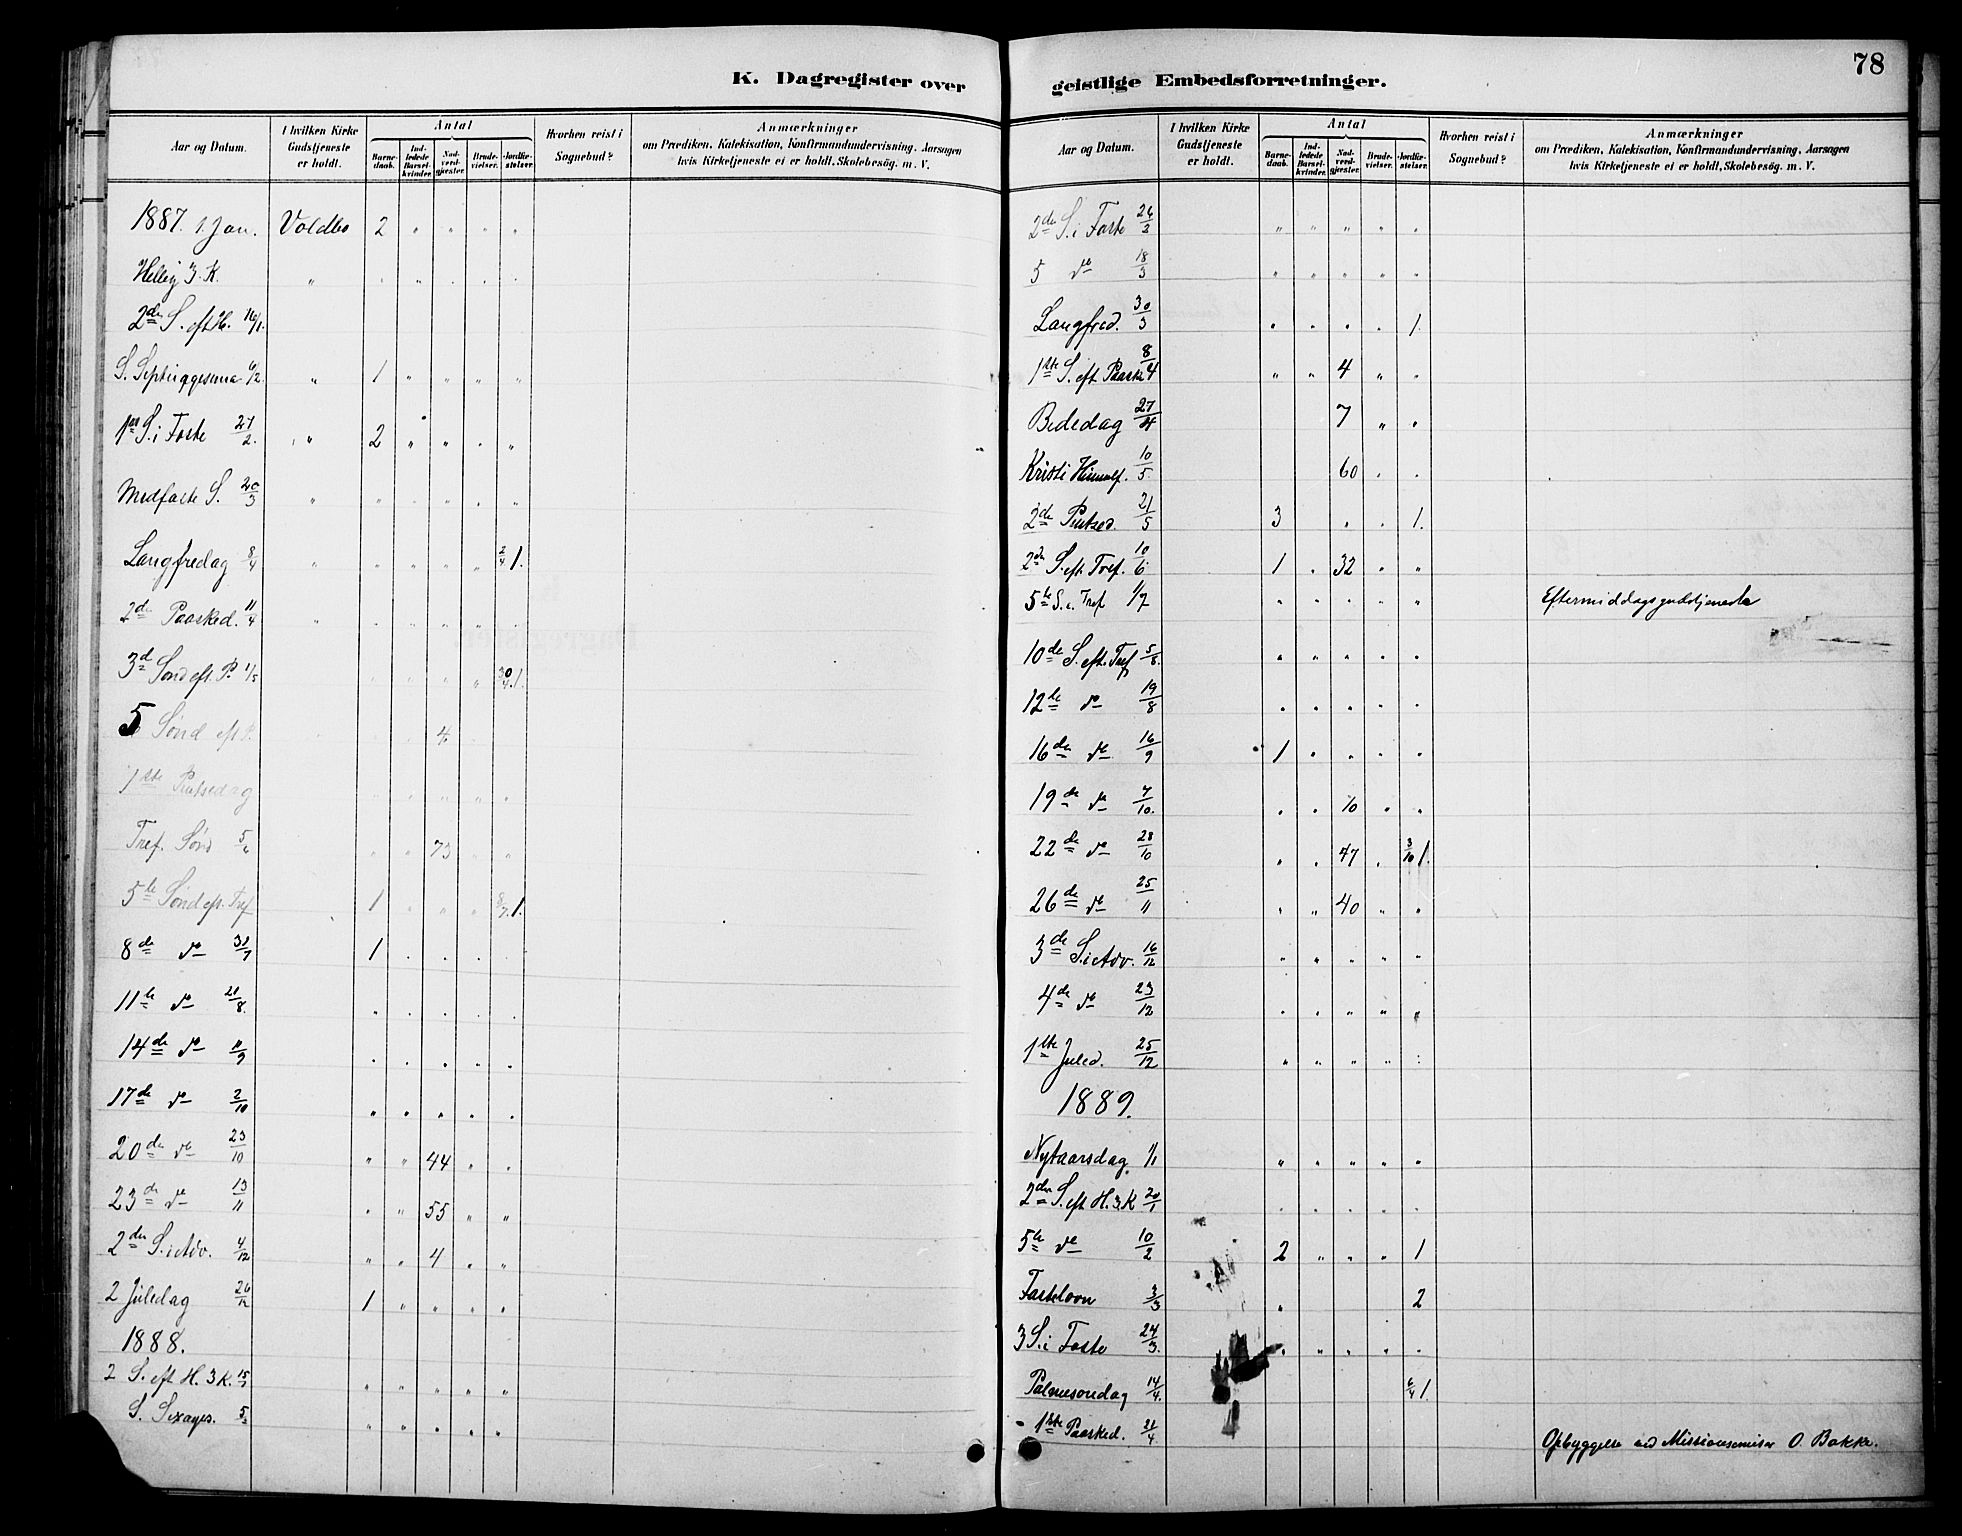 K. Dagregister over
Aar og Datum.
I hvilken Kirke Gudstjeneste er holdt.
Antal
Barnedaab.
Indledede Barselkvinder.
Nadverdgjæster.
Brudevielser.
Jordfæstelser.
Hvorhen reist i Sognebud?
Anmærkninger
om Prædiken, Katekisation, Konfirmandundervisning, Aarsagen
hvis Kirketjeneste ei er holdt, Skolebesög. m. V.
1887. 1 Jan. Voldbo 2 " " " "
Hellig 3. K. " " " " " "
2den S. eft H. 16/1.
S. Septuaggesima 6/2. " 1 " " " "
1ste S. i Faste 27/2. " 2 " " " "
Midfaste S. 20/3 " " " " " "
Langfredag 8/4 " " " " " 2/4 1.
2de Paasked. 11/4 " " " " " "
3de Sønd eft. P. 1/5 " " " " 30/4. 1.
5 Sønd eft P. " " 4 " "
1ste Pintsedag " " " " "
Tref. Sønd 5/6 " " 73 " "
5te Sønd eft. Tref 1 " " " 8/7. 1.
8de do 31/7 1 " " " "
11te do 21/8. " " " " "
14de do 11/9 " " " " "
17de do 2/10 " " " " "
20de do 23/10 " " 44 " "
23de do 13/11 " " 55 " "
2den S. i Adv. 4/12 " " 4 " "
2 Juledag 26/12 1 " " " "
1888.
2 S. eft H. 3 K. 15/1 " " " " "
S. Sexages. 5/2 " " " " "
geistlige Embedsforretninger.
78
Aar og Datum.
I hvilken Kirke Gudstjeneste er holdt.
Antal
Barnedaab.
Indledede Barselkvinder.
Nadverdgjæster.
Brudevielser.
Jordfæstelser.
Hvorhen reist i Sognebud?
Anmærkninger
om Prædiken, Katekisation, Konfirmandundervisning, Aarsagen
hvis Kirketjeneste ei er holdt, Skolebesög. m. V.
2de S. i Faste 26/3 " " " " "
5 do 18/3 " " " " "
Langfred. 30/3 " " " " 1.
1ste S. eft. Paaske 8/4 " " 4 " "
Bededag 27/4 7 " "
Kristi Himmelf. 10/5. 60 " "
2de Pintsed. 21/5 3 " " 1.
2de S. eft. Tref. 10/6 1 " 32 " "
5te S. e. Tref 1/7 " " " " " Eftermiddagsgudstjeneste
10de S. eft. Tref 5/8. " " " " "
12te do 19/8 " " " " "
16de do 16/9 1 " " " "
19de do 7/10. " " 10 " "
22de do 28/10 " " 47 " 3/10 1.
26de do 25/11 " " 40 " "
3de S. i Adv. 16/12 " " " " "
4de do 23/12 " " " " "
1ste Juled. 25/12 " " " " "
1889.
Nytaarsdag 1/1 " " " " "
2den S. eft H. 3 K 20/1 " " " " "
5te do 10/2 2 " " " 1
Fastelovn 3/3 " 2
3 S. i Faste 24/3. " " " " "
Palmesøndag 14/4. 6/4 1.
1ste Paasked. 21/4. Opbyggelse ved Missionsemisær O. Bakke.